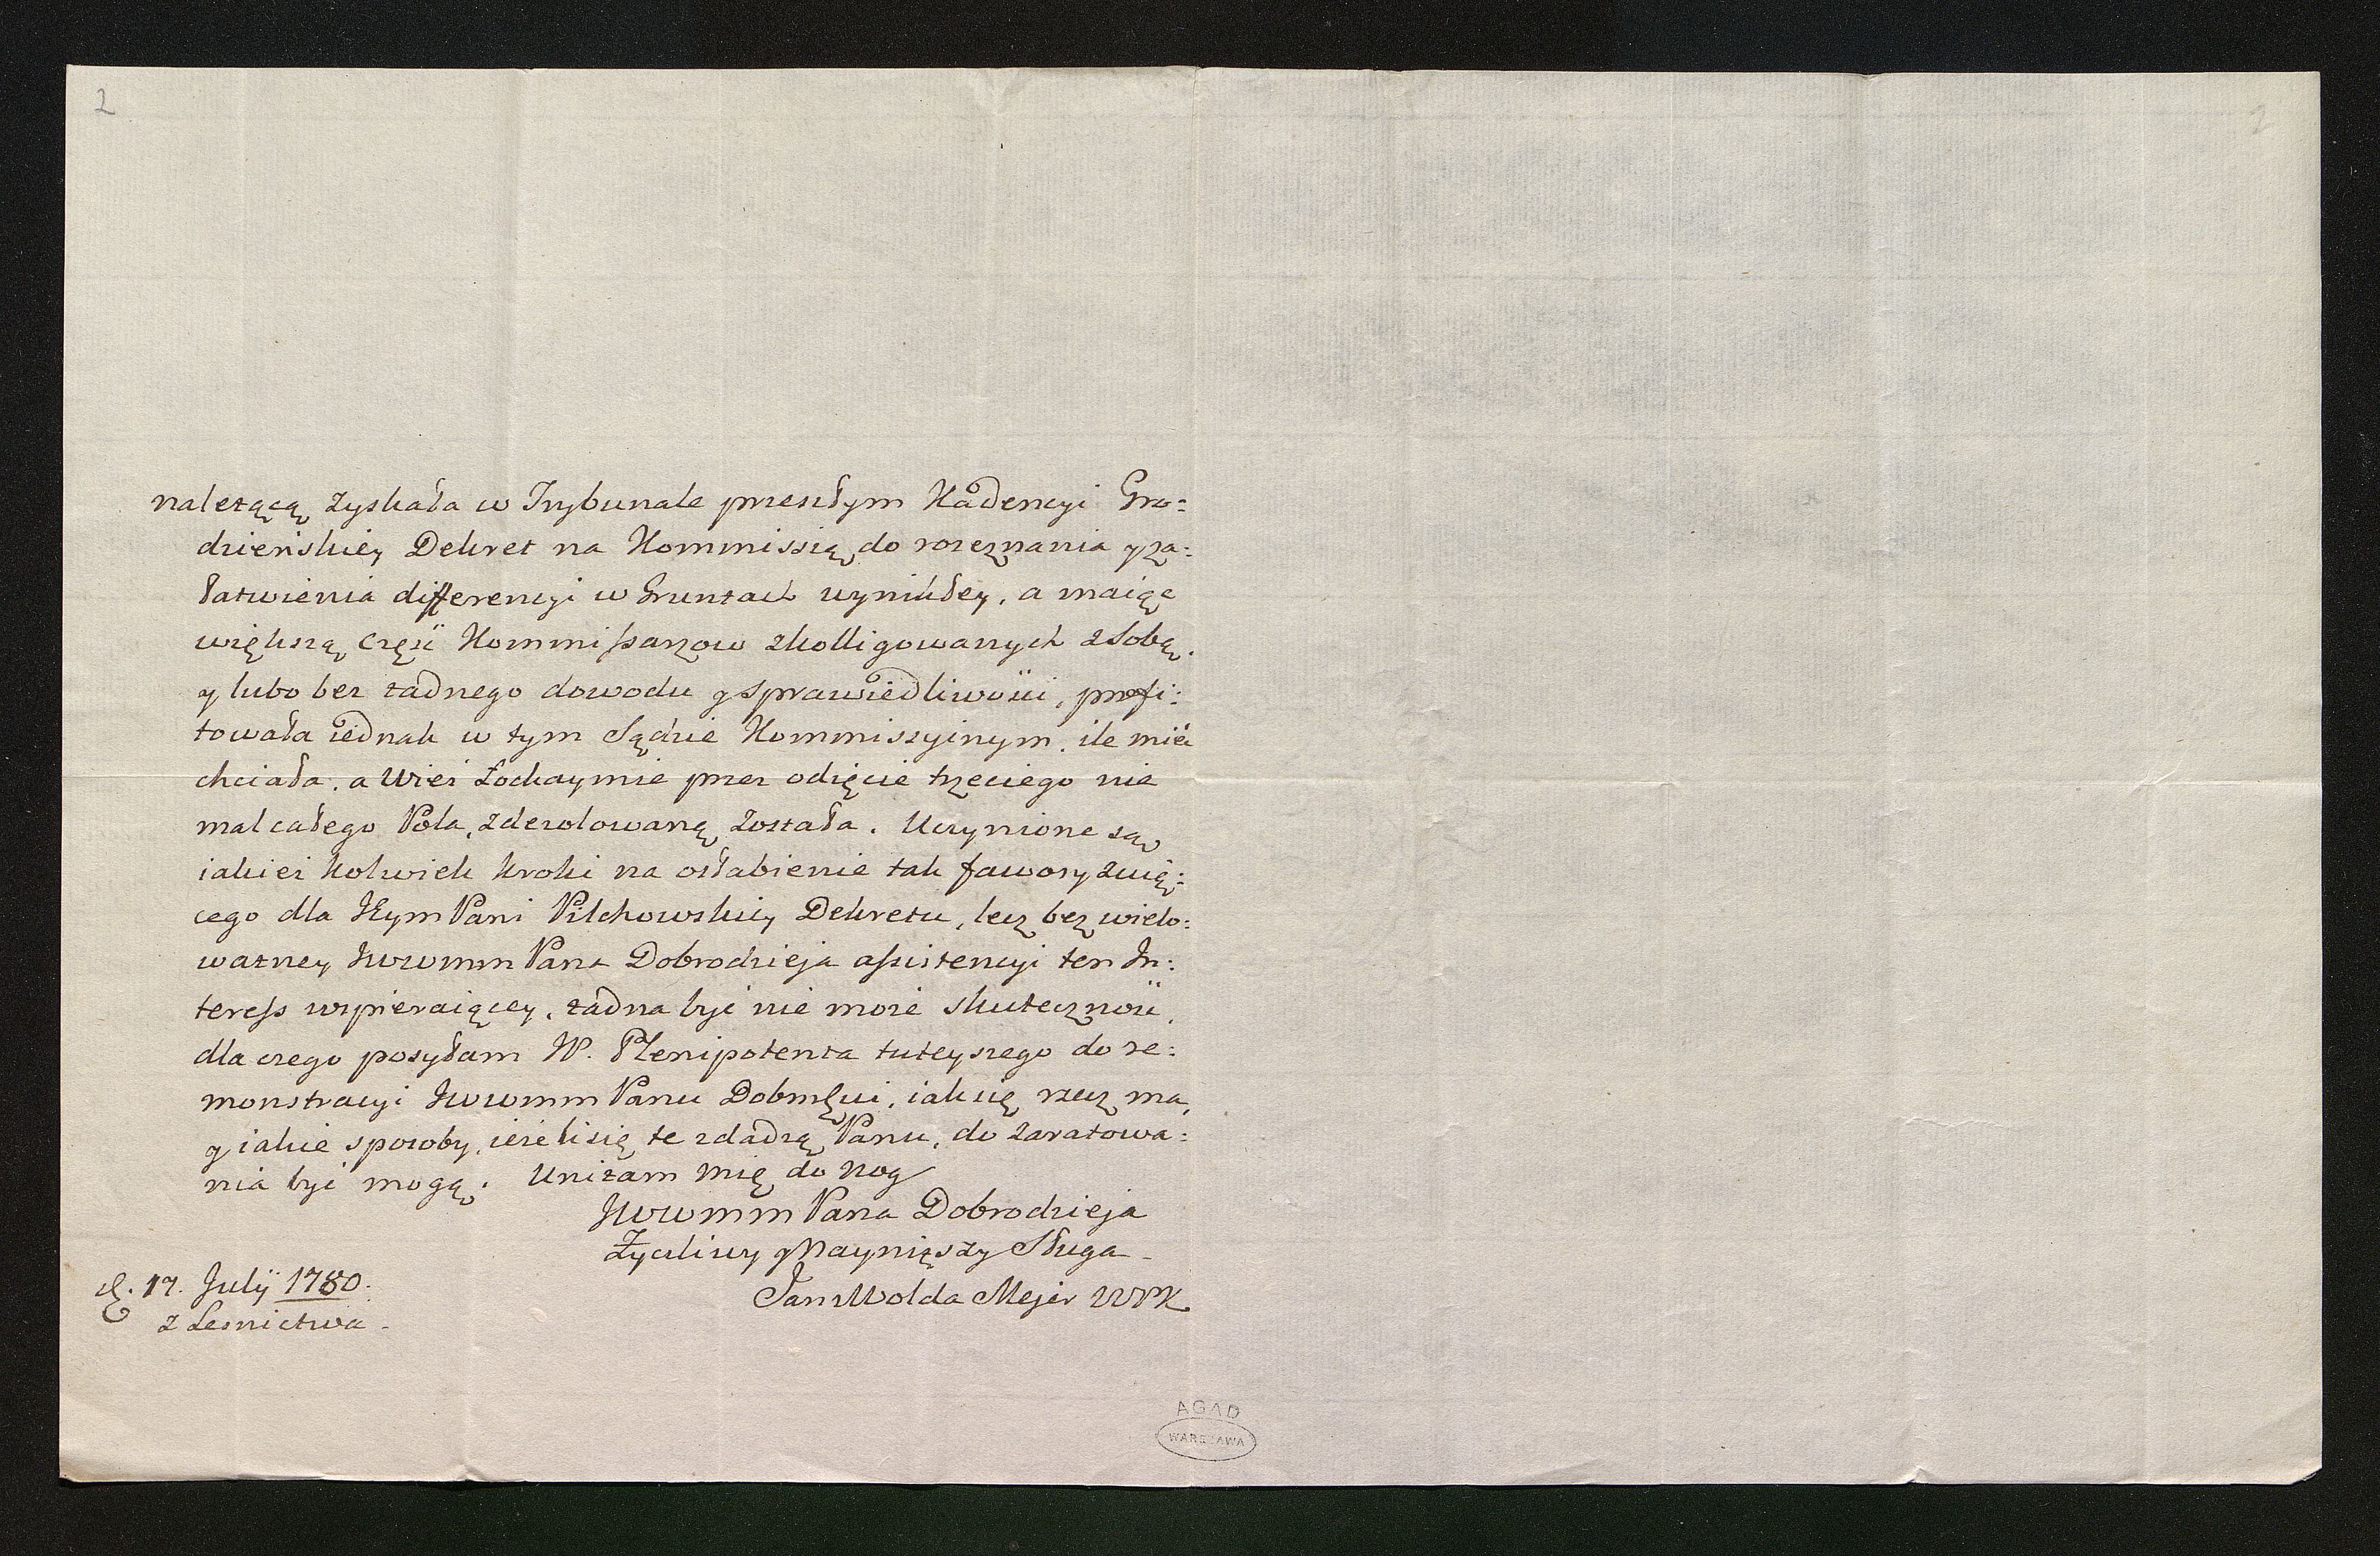 2
2
należącą zyskała w Trybunale przeszłym Kadencyi Gro=
dzieńskiey Dekret na Kommissią do rozeznania y za=
łatwienia differencyi w Gruntach wynikłey, a maiąc
większą częsć Kommissarzow zkolligowanych z sobą.
y lubo bez żadnego dowodu y sprawiedliwości, profi=
towała iednak w tym Sądzie Kommissyinym, ile mieć
chciała. a Wieś Łochaymie przez odięcie trzeciego nie
mal całego Pola, zdezolowaną została. Uczynione są
iakieś kolwiek kroki na osłabienie tak faworyzuią=
cego dla JEym Pani Pilchowskiey Dekretu, lecz bez wielo=
ważney JWWmm Pana Dobrodzieja assistencyi ten In=
teress wspieraiącey, żadna być nie może skuteczność,
dla czego posyłam W. Plenipotenta tuteyszego do re=
monstracyi JWWmm Panu Dobrnęwi, iak się rzecz ma,
y iakie sposoby, ieżeli się te zdadzą Panu, do zaratowa=
nia być mogą. Uniżam mię do nog
JWWmm Pana Dobrodzieja
Życzliwy y Nayniższy Sługa
Jan Wolda Mejer WPK
d. 17. Julÿ 1780.
z Lesnictwa
AGAD
WARSZAWA